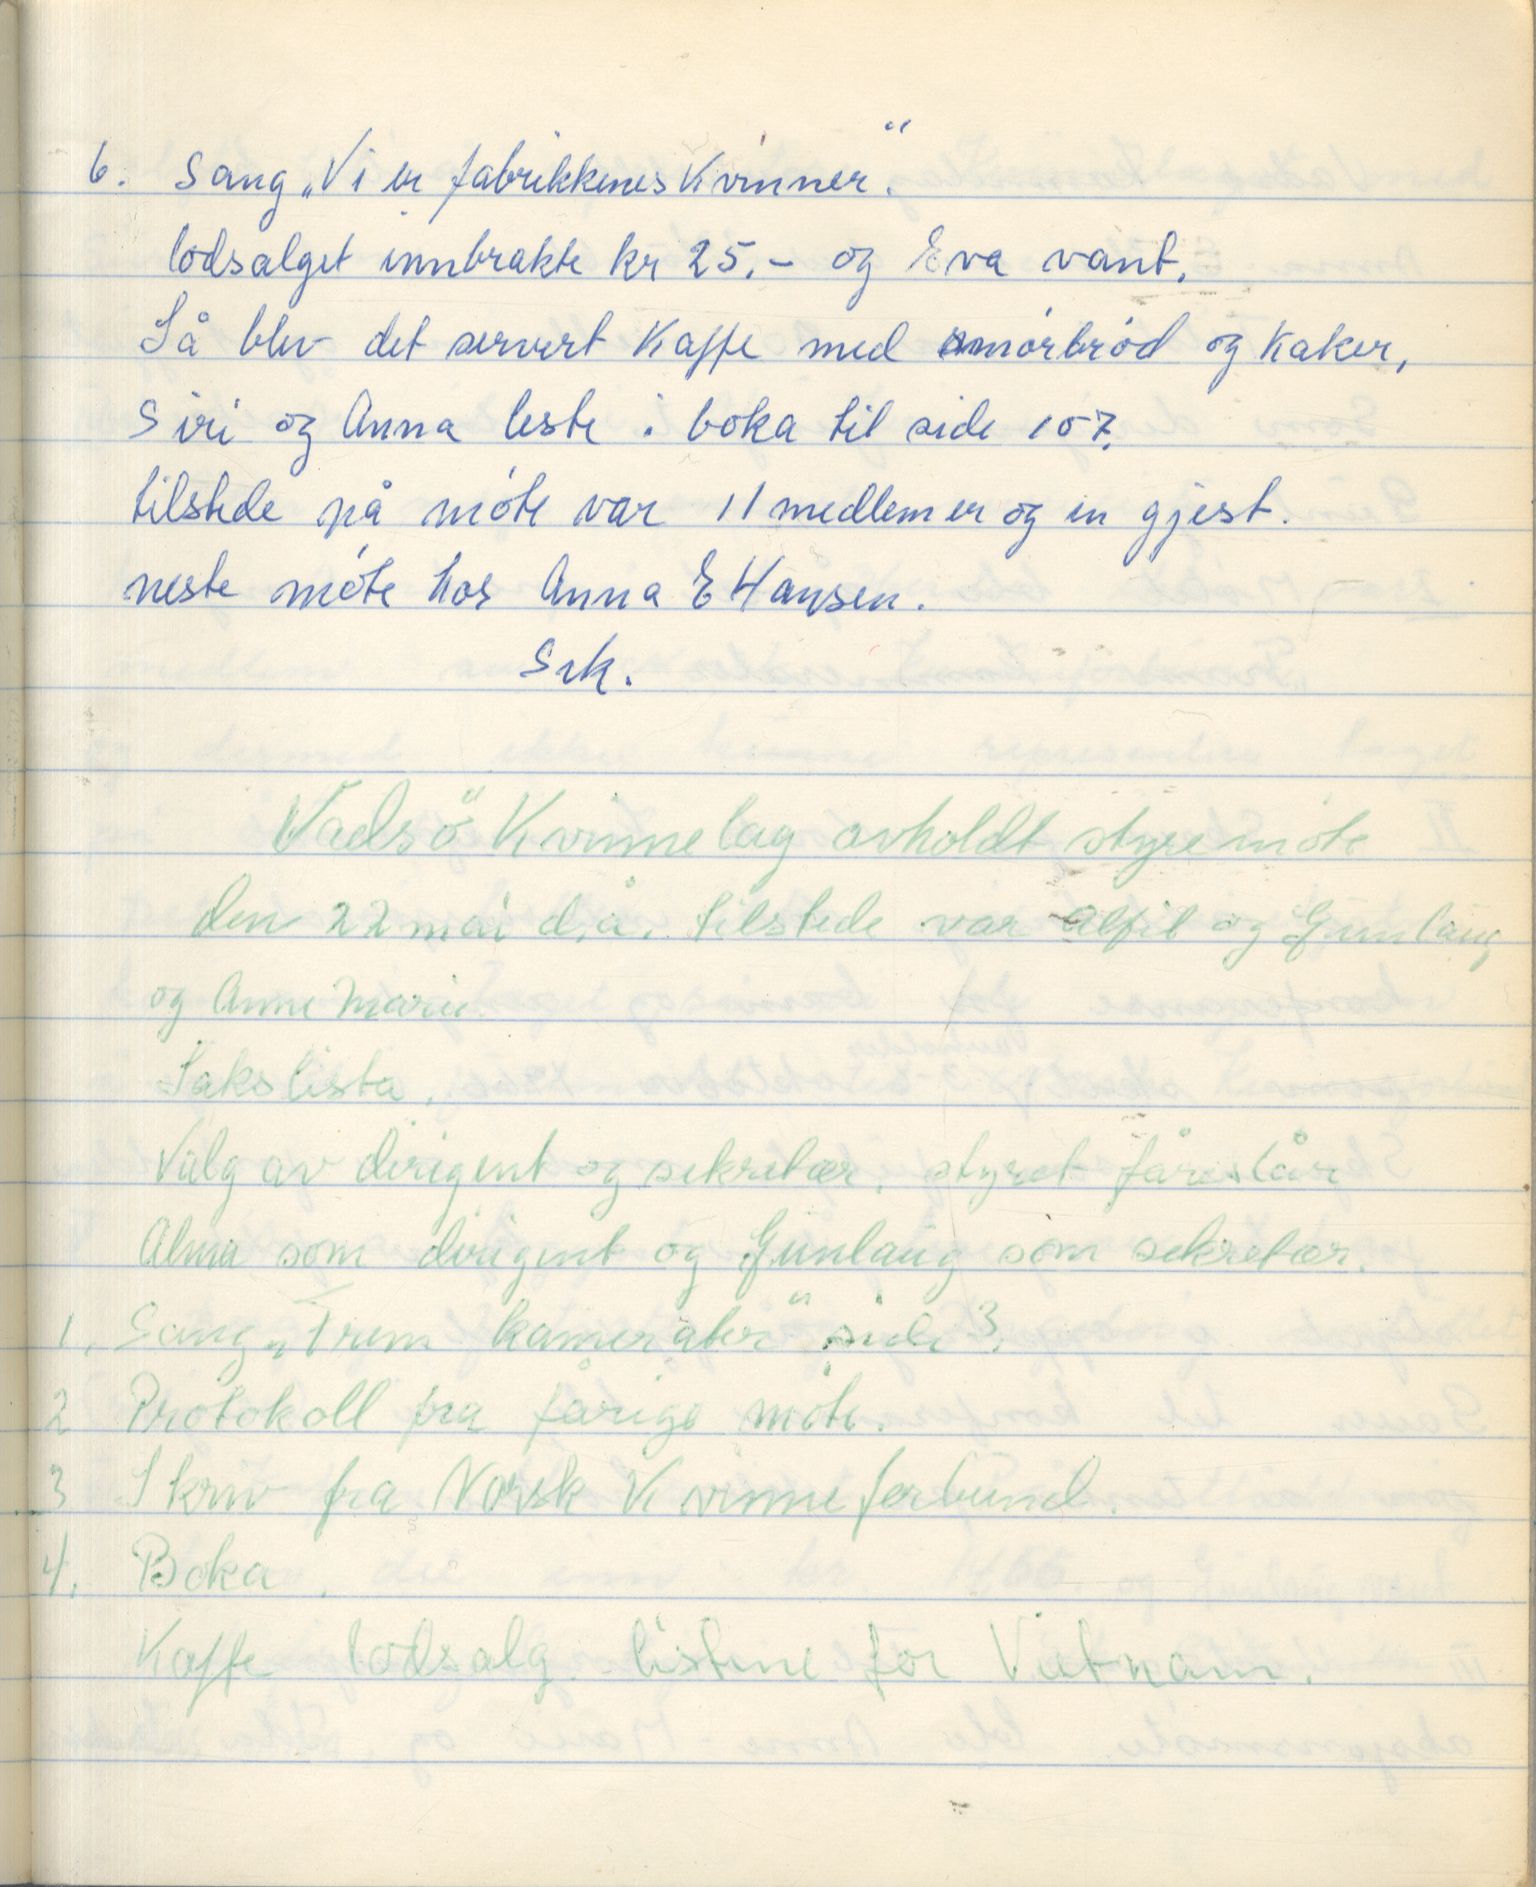 6. Sang „Vi er fabrikkenes Kvinner".
lodsalget innbrakte kr 25.- og Eva vant.
Så blev det servert Kaffe med smörbröd og Kaker,
Siri og Anna leste i boka til side 107.
tilstede på möte var 11 medlemer og en gjest.
neste möte hos Anna E Hansen.
Sek.
Vadsö Kvinnelag avholdt styremöte
den 22 mai d.å. tilstede var Alfil og Gunlaug
og Anne Marie.
Sakslista.
Valg av dirigent og sekretær. styret föreslår
Alma som dirigent og Gunlaug som sekretær.
1. Sang „Frem kamerater" side 3.
2 Protokoll fra förige möte.
3 Skriv fra Norsk Kvinneforbund.
4. Boka.
Kaffe lodsalg. listene for Vietnam.